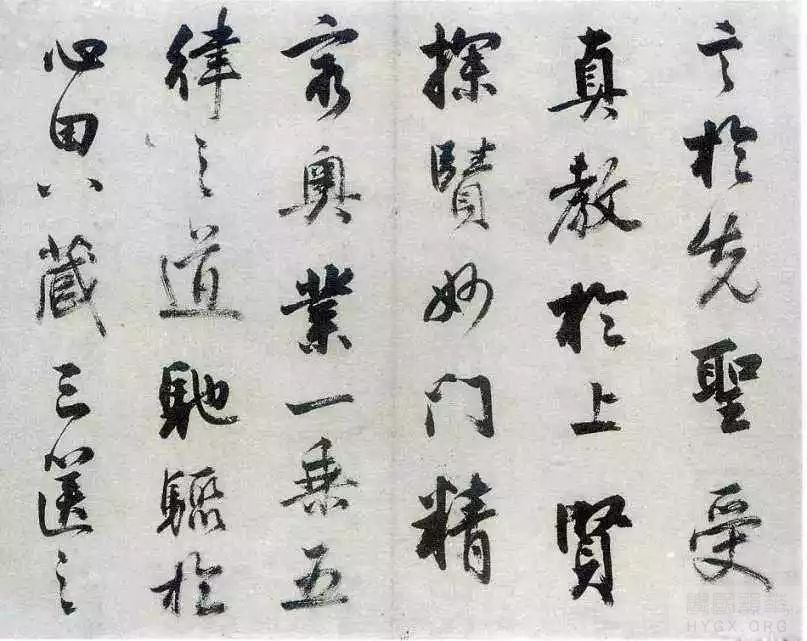 言於先聖受
真教於上賢
探賾妙門精
窮奧業一乘五
律之道馳驟於
心田八藏三篋之
HYGX.ORG